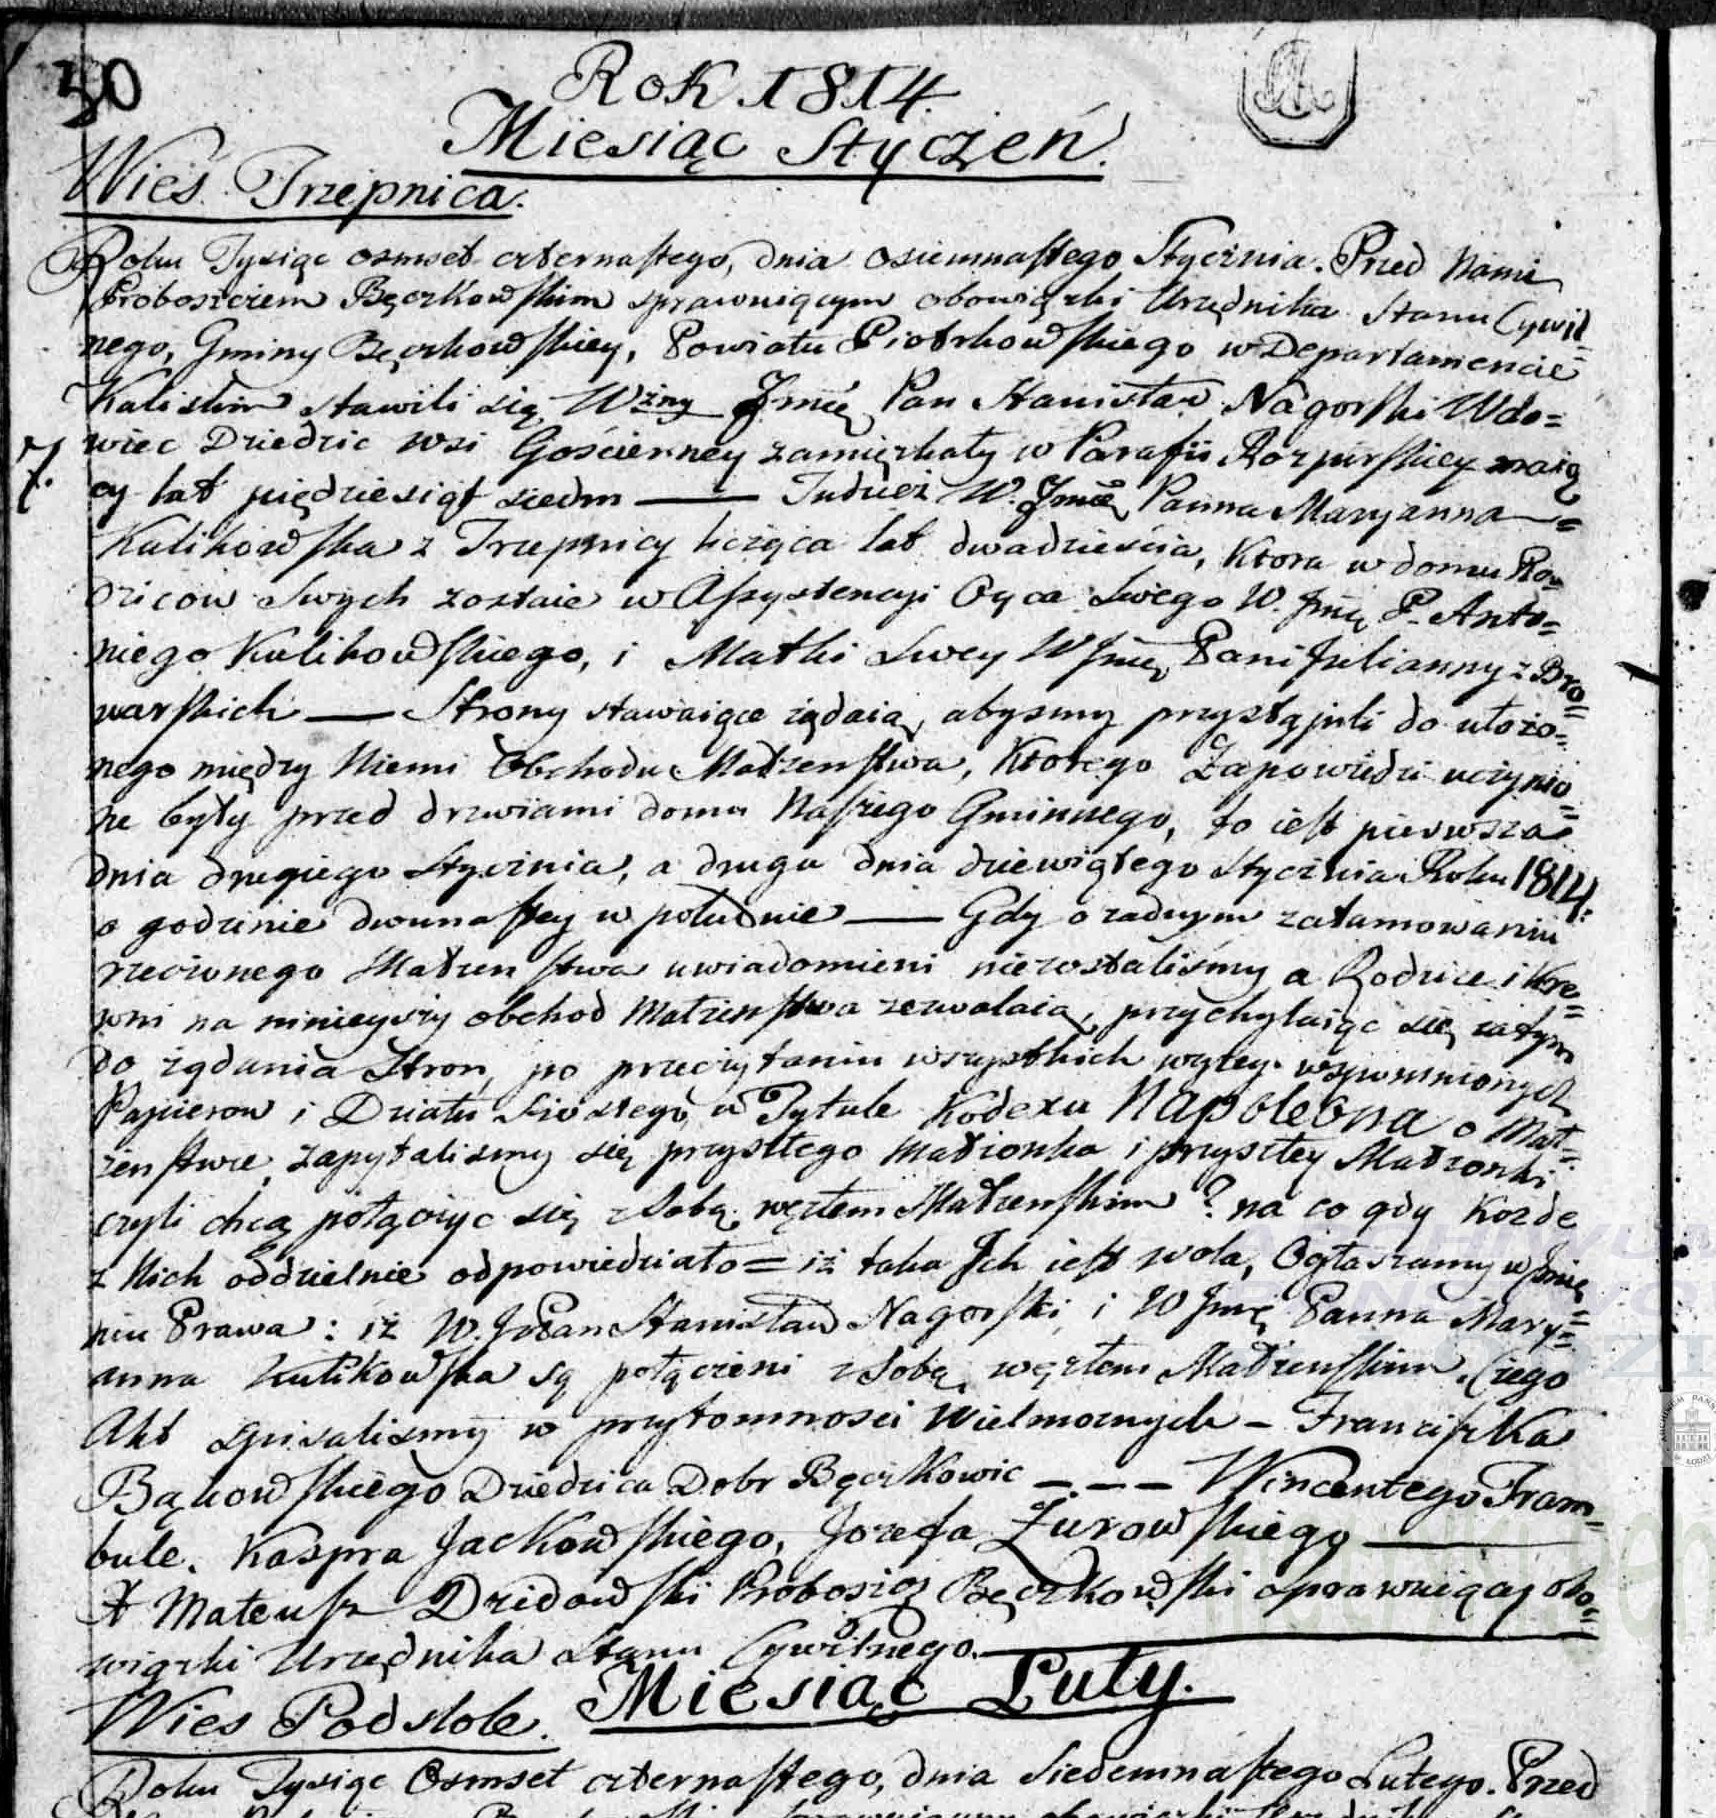 30
Rok 1814.
Miesiąc Styczeń.
Wieś Trzepnica.
Roku Tysiąc osmset czternastego, dnia osiemnastego Stycznia. Przed Nami
Proboszczem Bęczkowskim sprawuiącym obowiązki Urzędnika Stanu Cywil=
nego, Gminy Bęczkowskiey, Powiatu Piotrkowskiego w Departamencie
Kaliskim stawili się Wżny Jmć Pan Stanisław Nagorski Wdo=
wiec Dziedzic wsi Gościenney zamięszkały w Parafii Rozpirskiey maią
7.
cy lat pięćdziesiąt siedm — Tudzież W. Jmć Panna Maryanna =
Kulikowska z Trzepnicy licząca lat dwadzieścia, Ktora w domu Ro=
dzicow Swych zostaie w Assystencyi Oyca Swego W. Jmć P. Anto=
niego Kulikowskiego, i Matki Swey W Jmć Pani Julianny z Bro=
warskich — Strony stawaiące żądaią, abysmy przystąpili do ułożo=
nego między Niemi Obchodu Małżenstwa, Ktorego Zapowiedzi uczynio=
ne były przed drzwiami domu Naszego Gminnego, to iest pierwsza
dnia drugiego Stycznia, a druga dnia dziewiątego Stycznia Roku 1814.
o godzinie dwunastey w południe — Gdy o żadnym zatamowaniu
rzeczonego Małżenstwa uwiadomieni niezostaliśmy a Rodzice i Kre=
wni na ninieyszy obchod Małżenstwa zezwalaią, przychylaiąc się zatym
do żądania Stron, po przeczytaniu wszystkich wyżey wspomnionych
Papierow i Działu Szostego w Tytule Kodexu Napoleona o Mał=
żenstwie, zapytalismy się przyszłego Małżonka i przyszłey Małżonki
czyli chcą połączyc się z Sobą węzłem Małżenskim? na co gdy Kozde
z Nich oddzielnie odpowiedziało = iż taka Jch iest wola, Ogłaszamy w Jmie=
niu Prawa: iż W. J Pan Stanisław Nagorski, i W Jmć Panna Mary=
anna Kulikowska są połączeni z Sobą węzłem Małżenskim. Czego
Akt spisalismy w przytomnosci Wielmożnych – Franciszka
Bąkowskiego Dziedzica Dobr Bęczkowic – – – Wincentego Tram=
bule. Kaspra Jackowskiego, Jozefa Żurowskiego —
X Mateusz Dzidowski Proboszcz Bęczkowski sprawuiący obo=
wiązki Urzędnika Stanu Cywilnego. —
Miesiąc Luty.
Wies Podstole.
Roku Tysiąc Osmset czternastego, dnia Siedemnastego Lutego. Przed